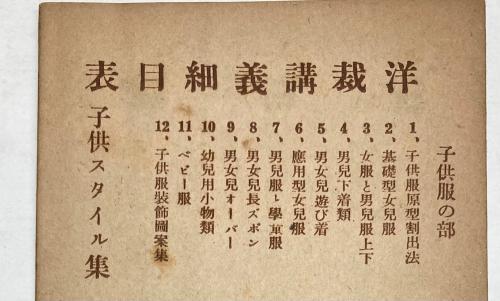 洋裁講義細目表
子供服の部
1、子供服原型割出法
2、基礎型女兒服
3、女服と男兒服上下
4、男兒下着類
5、男女兒遊び着
6、應用型女兒服
7、男兒服と學童服
8、男女兒長ズボン
9、男女兒オーバー
10、幼兒用小物類
11、ベビー服
12、子供服裝飾圖案集
子供スタイル集